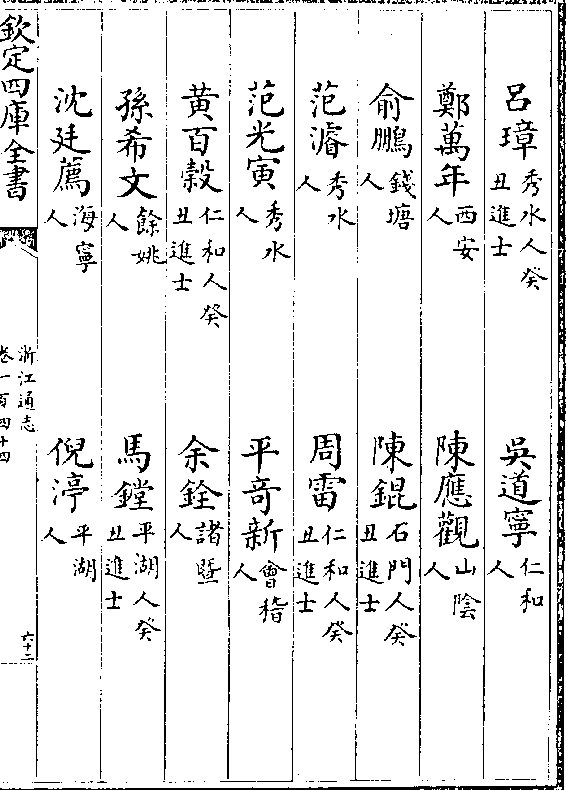 呂璋秀水人癸丑進士　吳道寧仁和人
鄭萬年西安人　陳應觀山陰人
俞鵬錢塘人　陳錕石門人癸丑進士
范濬秀水人　周雷仁和人癸丑進士
范光寅秀水人　平竒新會稽人
黃百穀仁和人癸丑進士　余銓諸暨人
孫希文餘姚人　馬鏜平湖人癸丑進士
沈廷薦海寧人　倪渟平湖人
欽定四庫全書
浙江通志
卷一百四十四
六十二